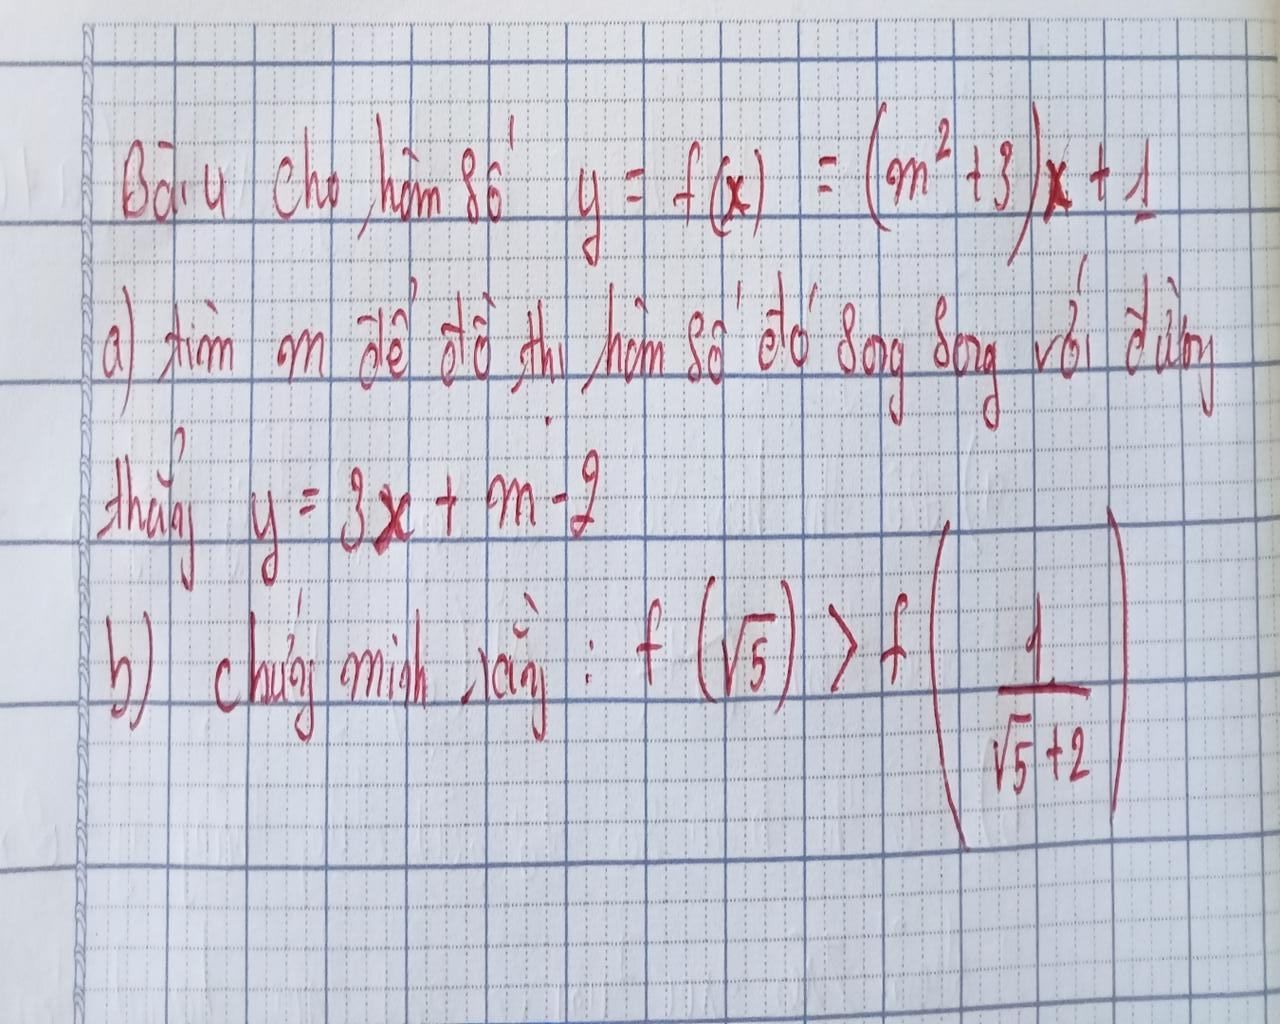 Bài 4 cho hàm số y = f(x) = (m² + 3)x + 1
a) tìm m để đồ thị hàm số đó song song với đường
thẳng y = 3x + m - 2
b) chứng minh rằng : f (√5) > f (1/(√5 + 2))